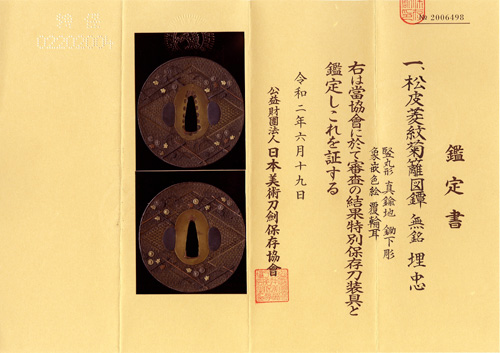 № 2006498
鑑定書
一、松皮菱紋菊籬図鐔 無銘 埋忠
竪丸形 真鍮地 鋤下彫
象嵌色絵 覆輪耳
右は當協會に於て審査の結果特別保存刀装具と
鑑定しこれを証する
令和二年六月十九日
公益財團法人 日本美術刀劍保存協會